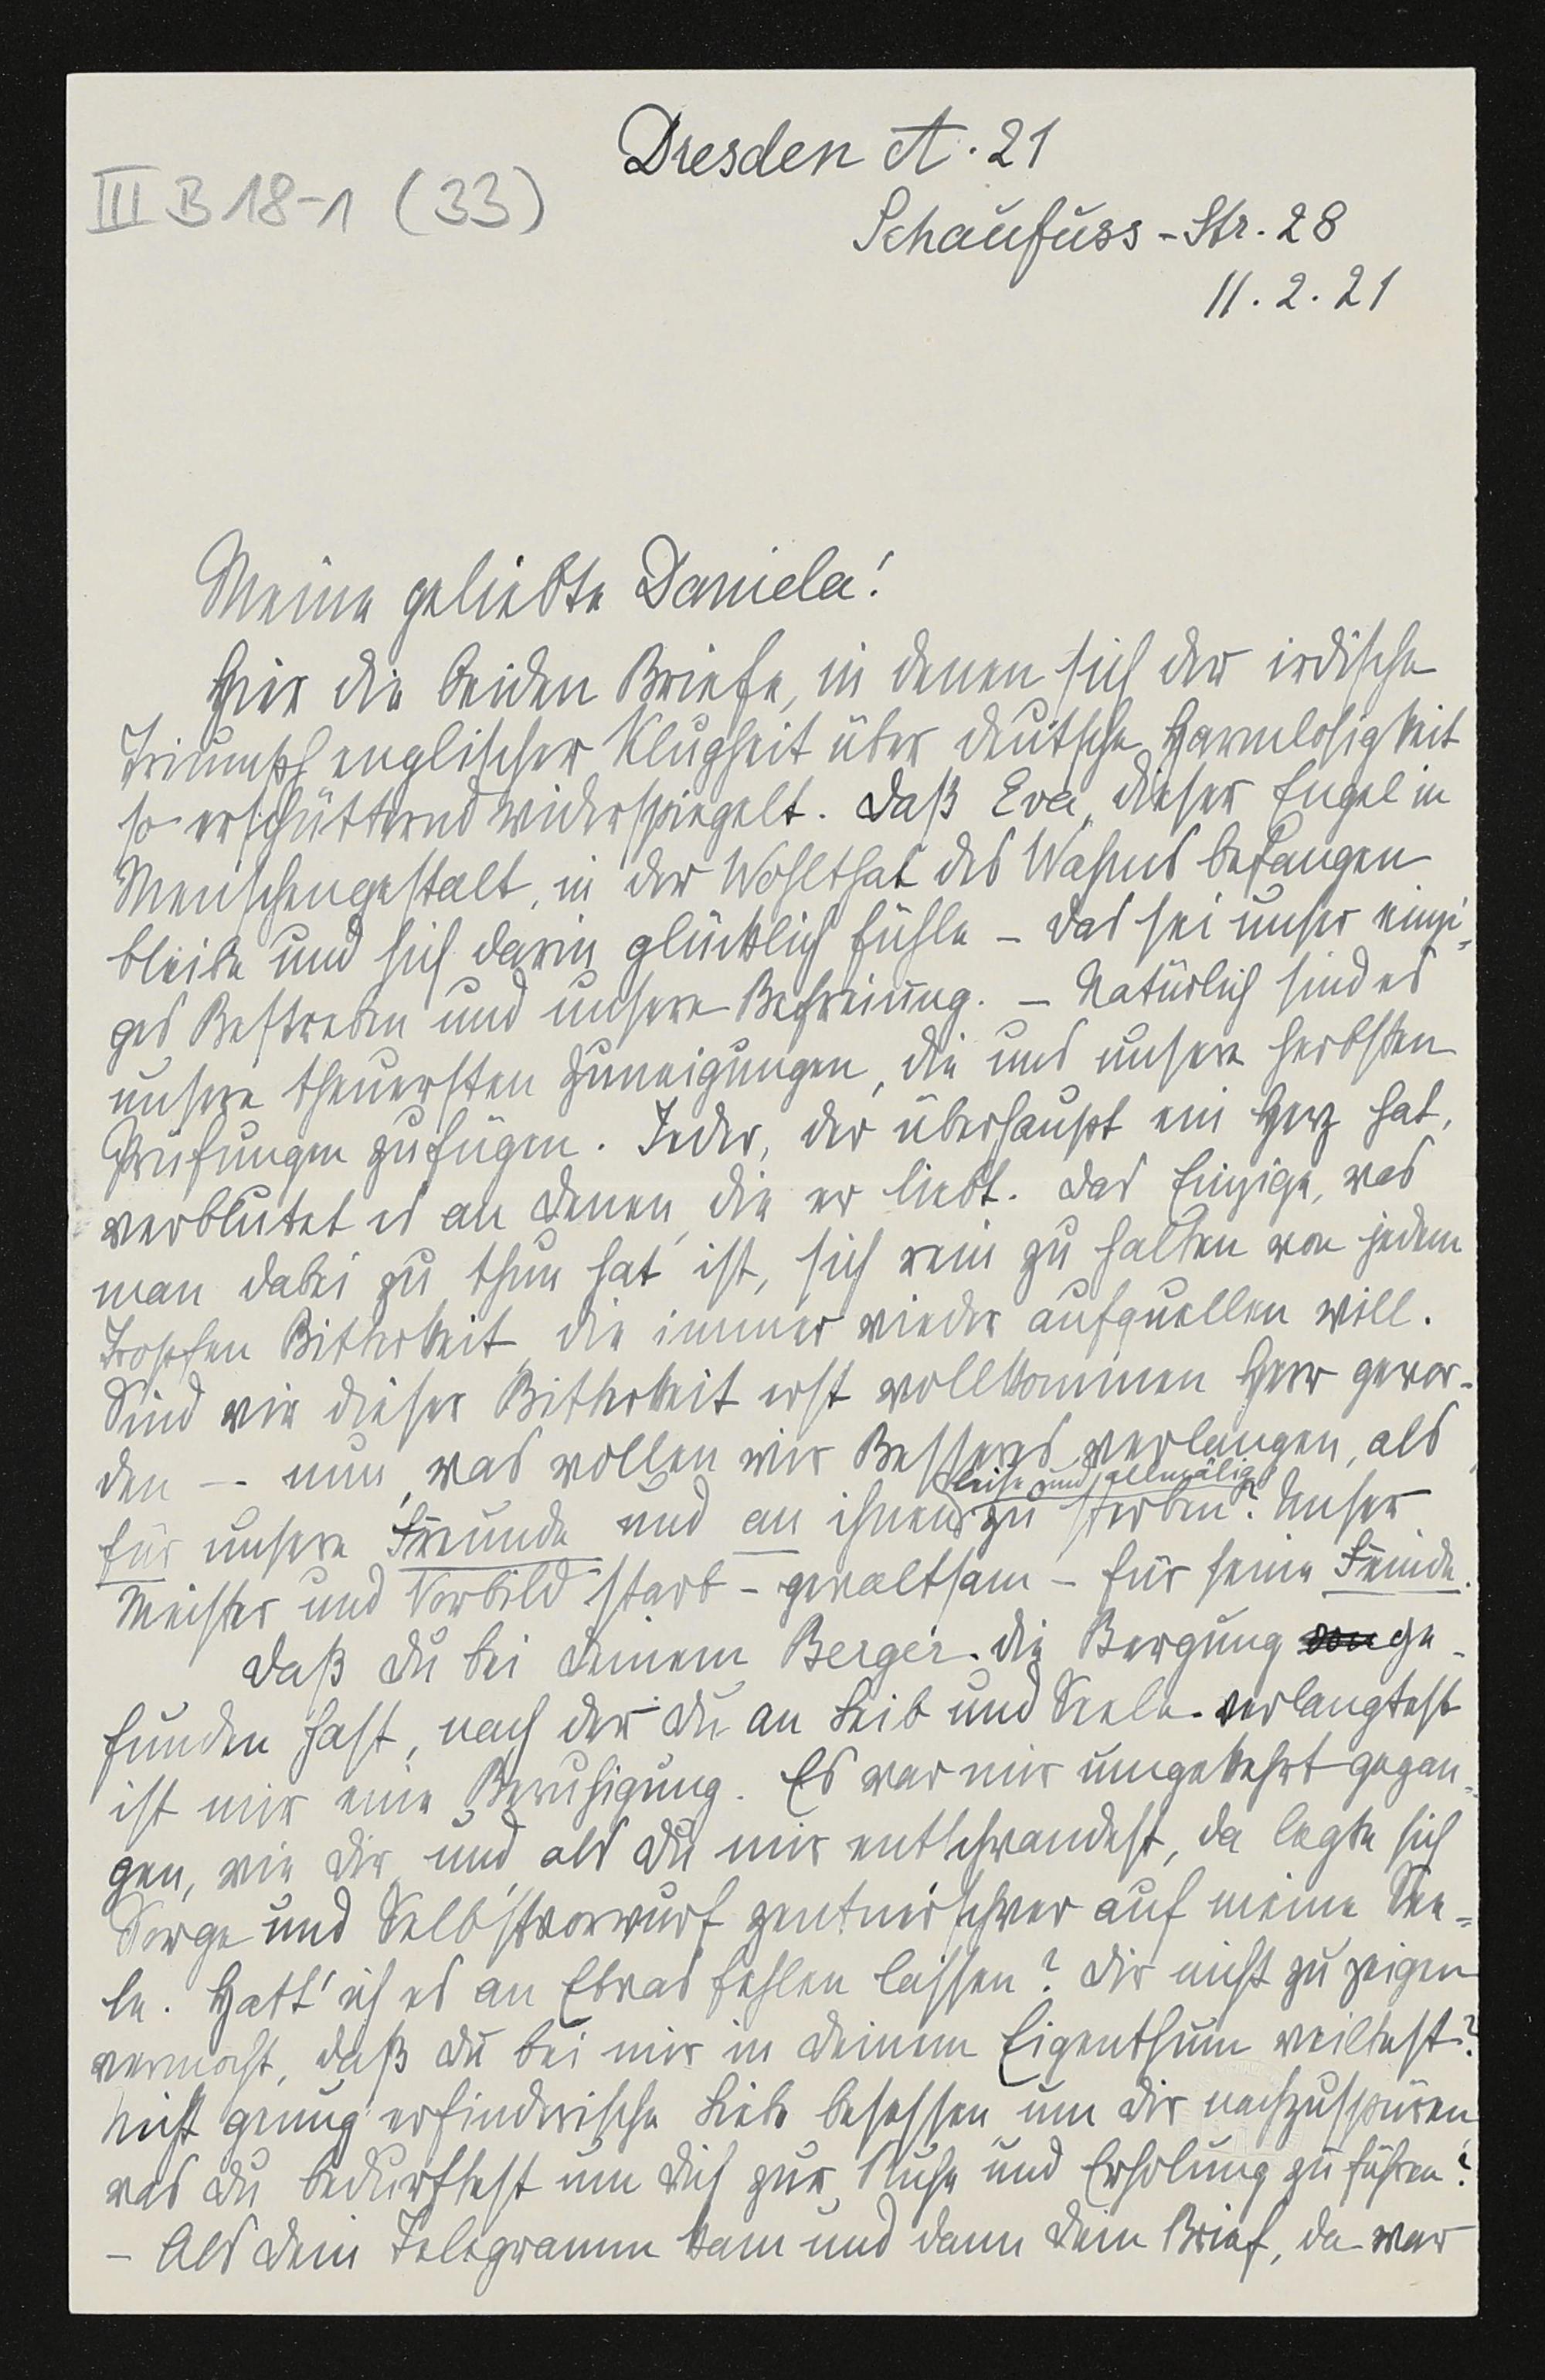 III B 18-1 (33)
Dresden A. 21
Schaufuss-Str. 28
11. 2. 21
Meine geliebte Daniela!
Hier die beiden Briefe, in denen sich der irdische
Triumph englischer Klugheit über deutsche Harmlosigkeit
so erschütternd widerspiegelt. Daß Eva, dieser Engel in
Menschengestalt, in der Wohlthat des Wahns befangen
bleibe und sich darin glücklich fühle – das sei unser einzi-
ges Bestreben und unsere Befreiung. – Natürlich sind es
unsere theuersten Zuneigungen, die uns unsere herbsten
Prüfungen zufügen. Jeder, der überhaupt ein Herz hat,
verblutet es an Denen, die er liebt. Das Einzige, was
man dabei zu thun hat ist, sich rein zu halten von jedem
Tropfen Bitterkeit, die immer wieder aufquellen will.
Sind wir dieser Bitterkeit erst vollkommen Herr gewor-
den – nun, was wollen wir Besseres verlangen, als
leise und allmälig
für unsere Freunde und an ihnen zu sterben? Unser
Meister und Vorbild starb – gewaltsam – für seine Feinde.
Daß Du bei Deinem Berger die Bergung ge-
funden hast, nach der Du an Leib und Seele verlangtest
ist mir eine Beruhigung. Es war mir umgekehrt gegan-
gen, wie Dir, und als Du mir entschwandest, da legte sich
Sorge und Selbstvorwurf zentnerschwer auf meine See-
le. Hatt' ich es an Etwas fehlen lassen? Dir nicht zu zeigen
vermocht, daß Du bei mir in Deinem Eigenthum weiltest?
Nicht genug erfinderische Liebe besessen um Dir nachzuspüren
was Du bedurftest um Dich zur Ruhe und Erholung zu führen?
– Als Dein Telegramm kam und dann Dein Brief, da war